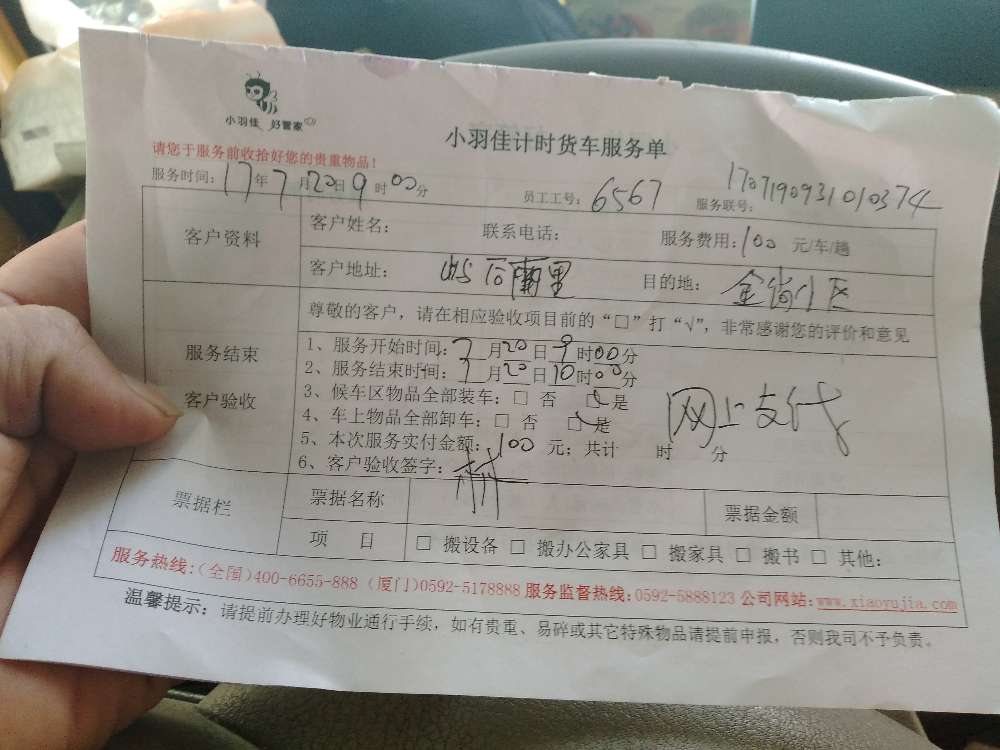 小羽佳 好管家
小羽佳计时货车服务单
请您于服务前收拾好您的贵重物品！
服务时间：17年7月20日9时00分 员工工号：6567 服务联号：1707190931010374
客户资料
客户姓名： 联系电话： 服务费用：100 元/车/趟
客户地址： 后南里 目的地：金尚小区
尊敬的客户，请在相应验收项目前的“□”打“√”，非常感谢您的评价和意见
服务结束
客户验收
1、服务开始时间：7月20日9时00分
2、服务结束时间：7月20日10时00分
3、候车区物品全部装车：□ 否 ☑是
4、车上物品全部卸车：□ 否 ☑是
网上支付
5、本次服务实付金额：100 元；共计 时 分
6、客户验收签字：林
票据栏
票据名称 票据金额
项 目 □ 搬设备 □ 搬办公家具 □ 搬家具 □ 搬书 □ 其他：
服务热线：（全国）400-6655-888（厦门）0592-5178888 服务监督热线：0592-5888123 公司网站：www.xiaoyujia.com
温馨提示：请提前办理好物业通行手续，如有贵重、易碎或其它特殊物品请提前申报，否则我司不予负责。